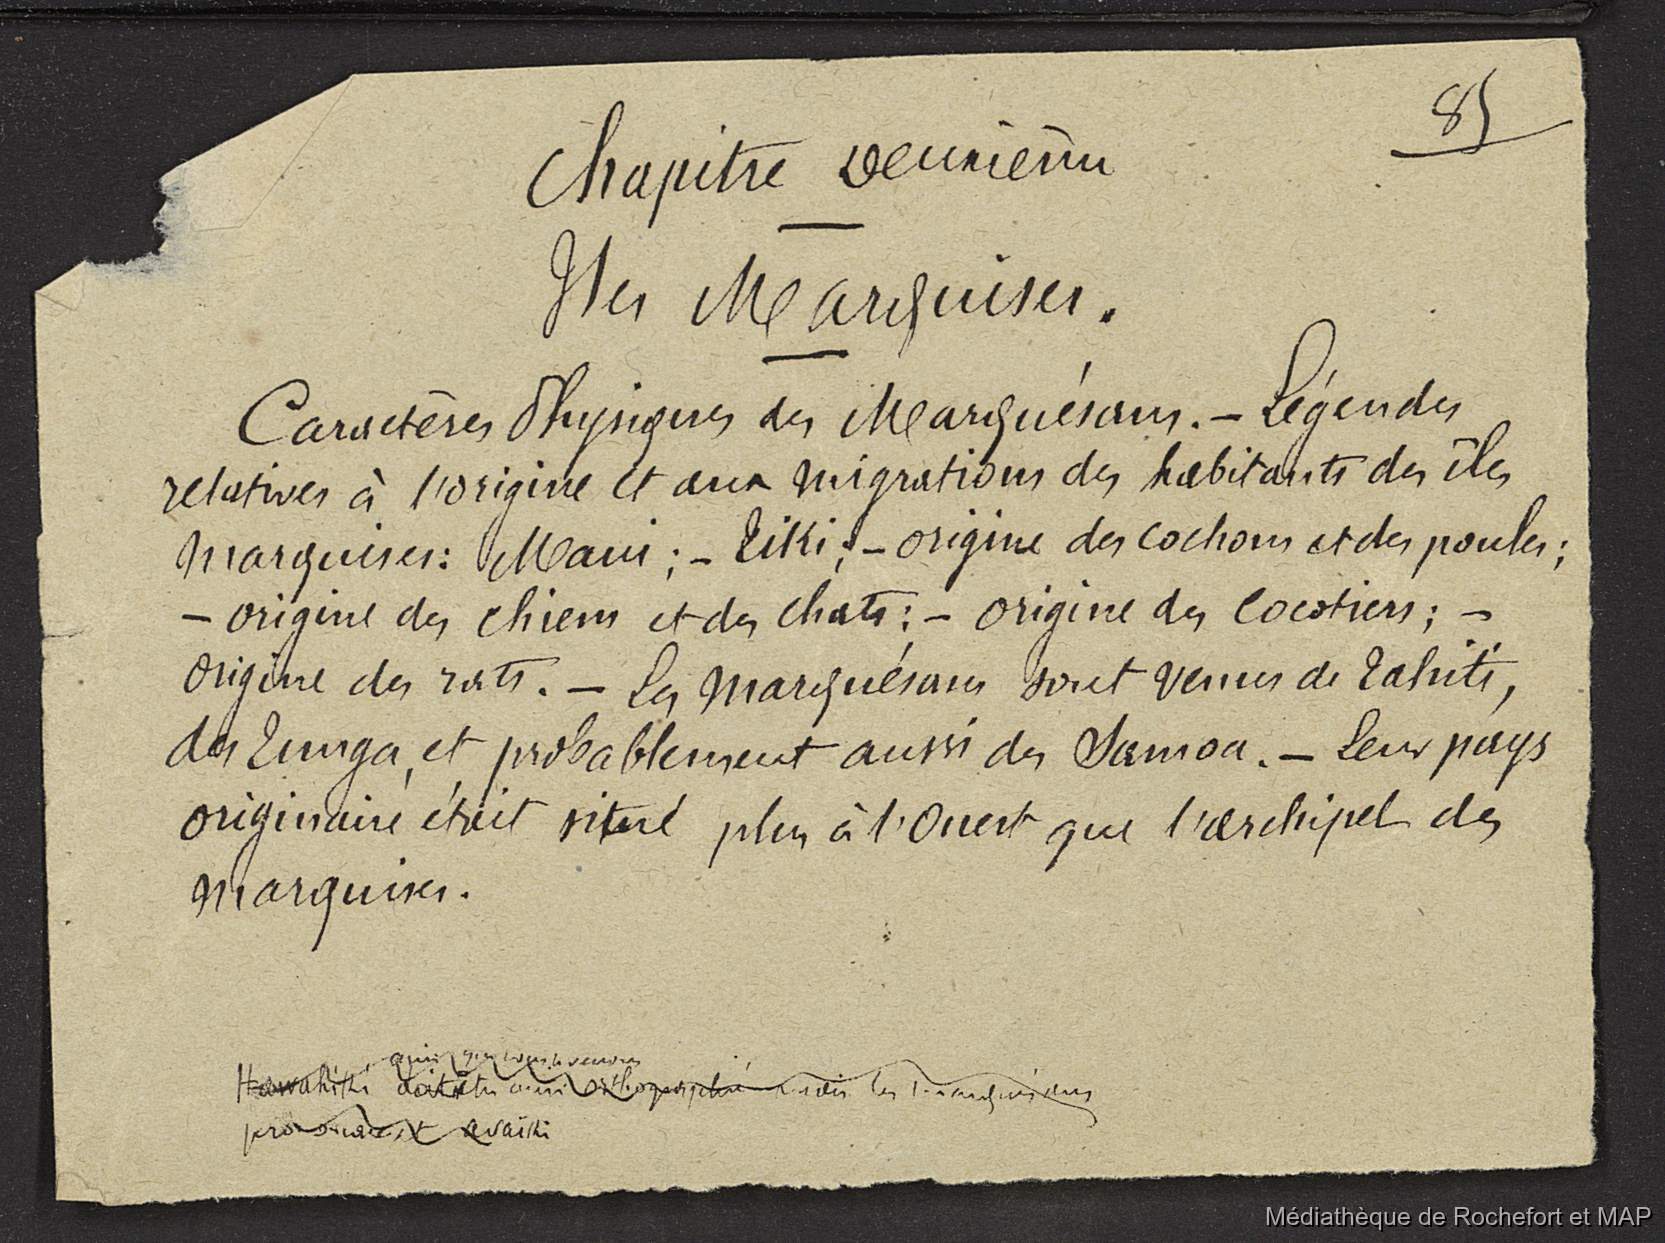 85
Chapitre deuxième
Iles Marquises.
Caractères Physiques des Marquésans. – Légendes
relatives à l'origine et aux migrations des habitants des îles
Marquises: Maui; – Tiki; – origine des cochons et des poules;
– origine des chiens et des chats; – origine des cocotiers; –
origine des rats. – Les Marquésans sont venus de Tahiti,
des Tunga, et probablement aussi des Samoa. – Leur pays
originaire était situé plus à l'Ouest que l'archipel des
Marquises.
ainsi que nous le verrons
Hawahiki doit être ainsi orthographié mais les Marquésans
prononcent avaiki
Médiathèque de Rochefort et MAP